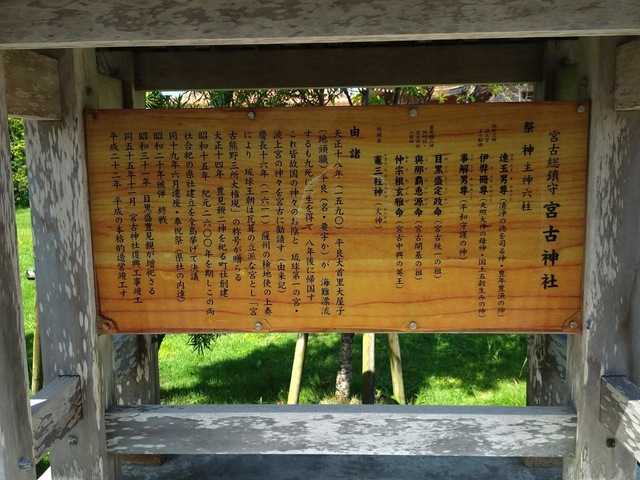 宮古総鎮守 宮古神社
祭神 主神六柱
速玉男尊（清浄の徳を司る神・豊年豊漁の神）
伊弉冊尊（天照大神の母神・国土五穀生みの神）
事解男尊（平和守護の神）
目黒盛定政命（宮古統一の祖）
與那覇恵源命（宮古開基の祖）
仲宗根玄雅命（宮古中興の英王）
竈三柱神（火神）
由緒
天正十八年（一五九〇） 平良大首里大屋子
（地頭職）平良（名・要字か）が 海難漂流
するも九死に一生を得て 八年後に帰国す
これ皆故国の神々のお陰と 琉球第一の宮・
波上宮の神々を宮古に勧請す（由来記）
慶長十六年（一六一一）薩州の検地使の上奏
により 琉球王朝は瓦葺の立派な宮とし「宮
古熊野三所大権現」の称号が贈らる
大正十四年 豊見親二神を祀る町社創建
昭和十五年 紀元二六〇〇年を期しこの両
社合祀の県社建立を全島挙げて決議
同十九年六月遷座・奉祝祭（県社の内達）
昭和二十年被弾 終戦
昭和三十一年 目黒盛豊見親が増祀さる
同五十五年十一月 宮古神社復興工事竣工
平成二十二年 平成の本格的造営竣工す